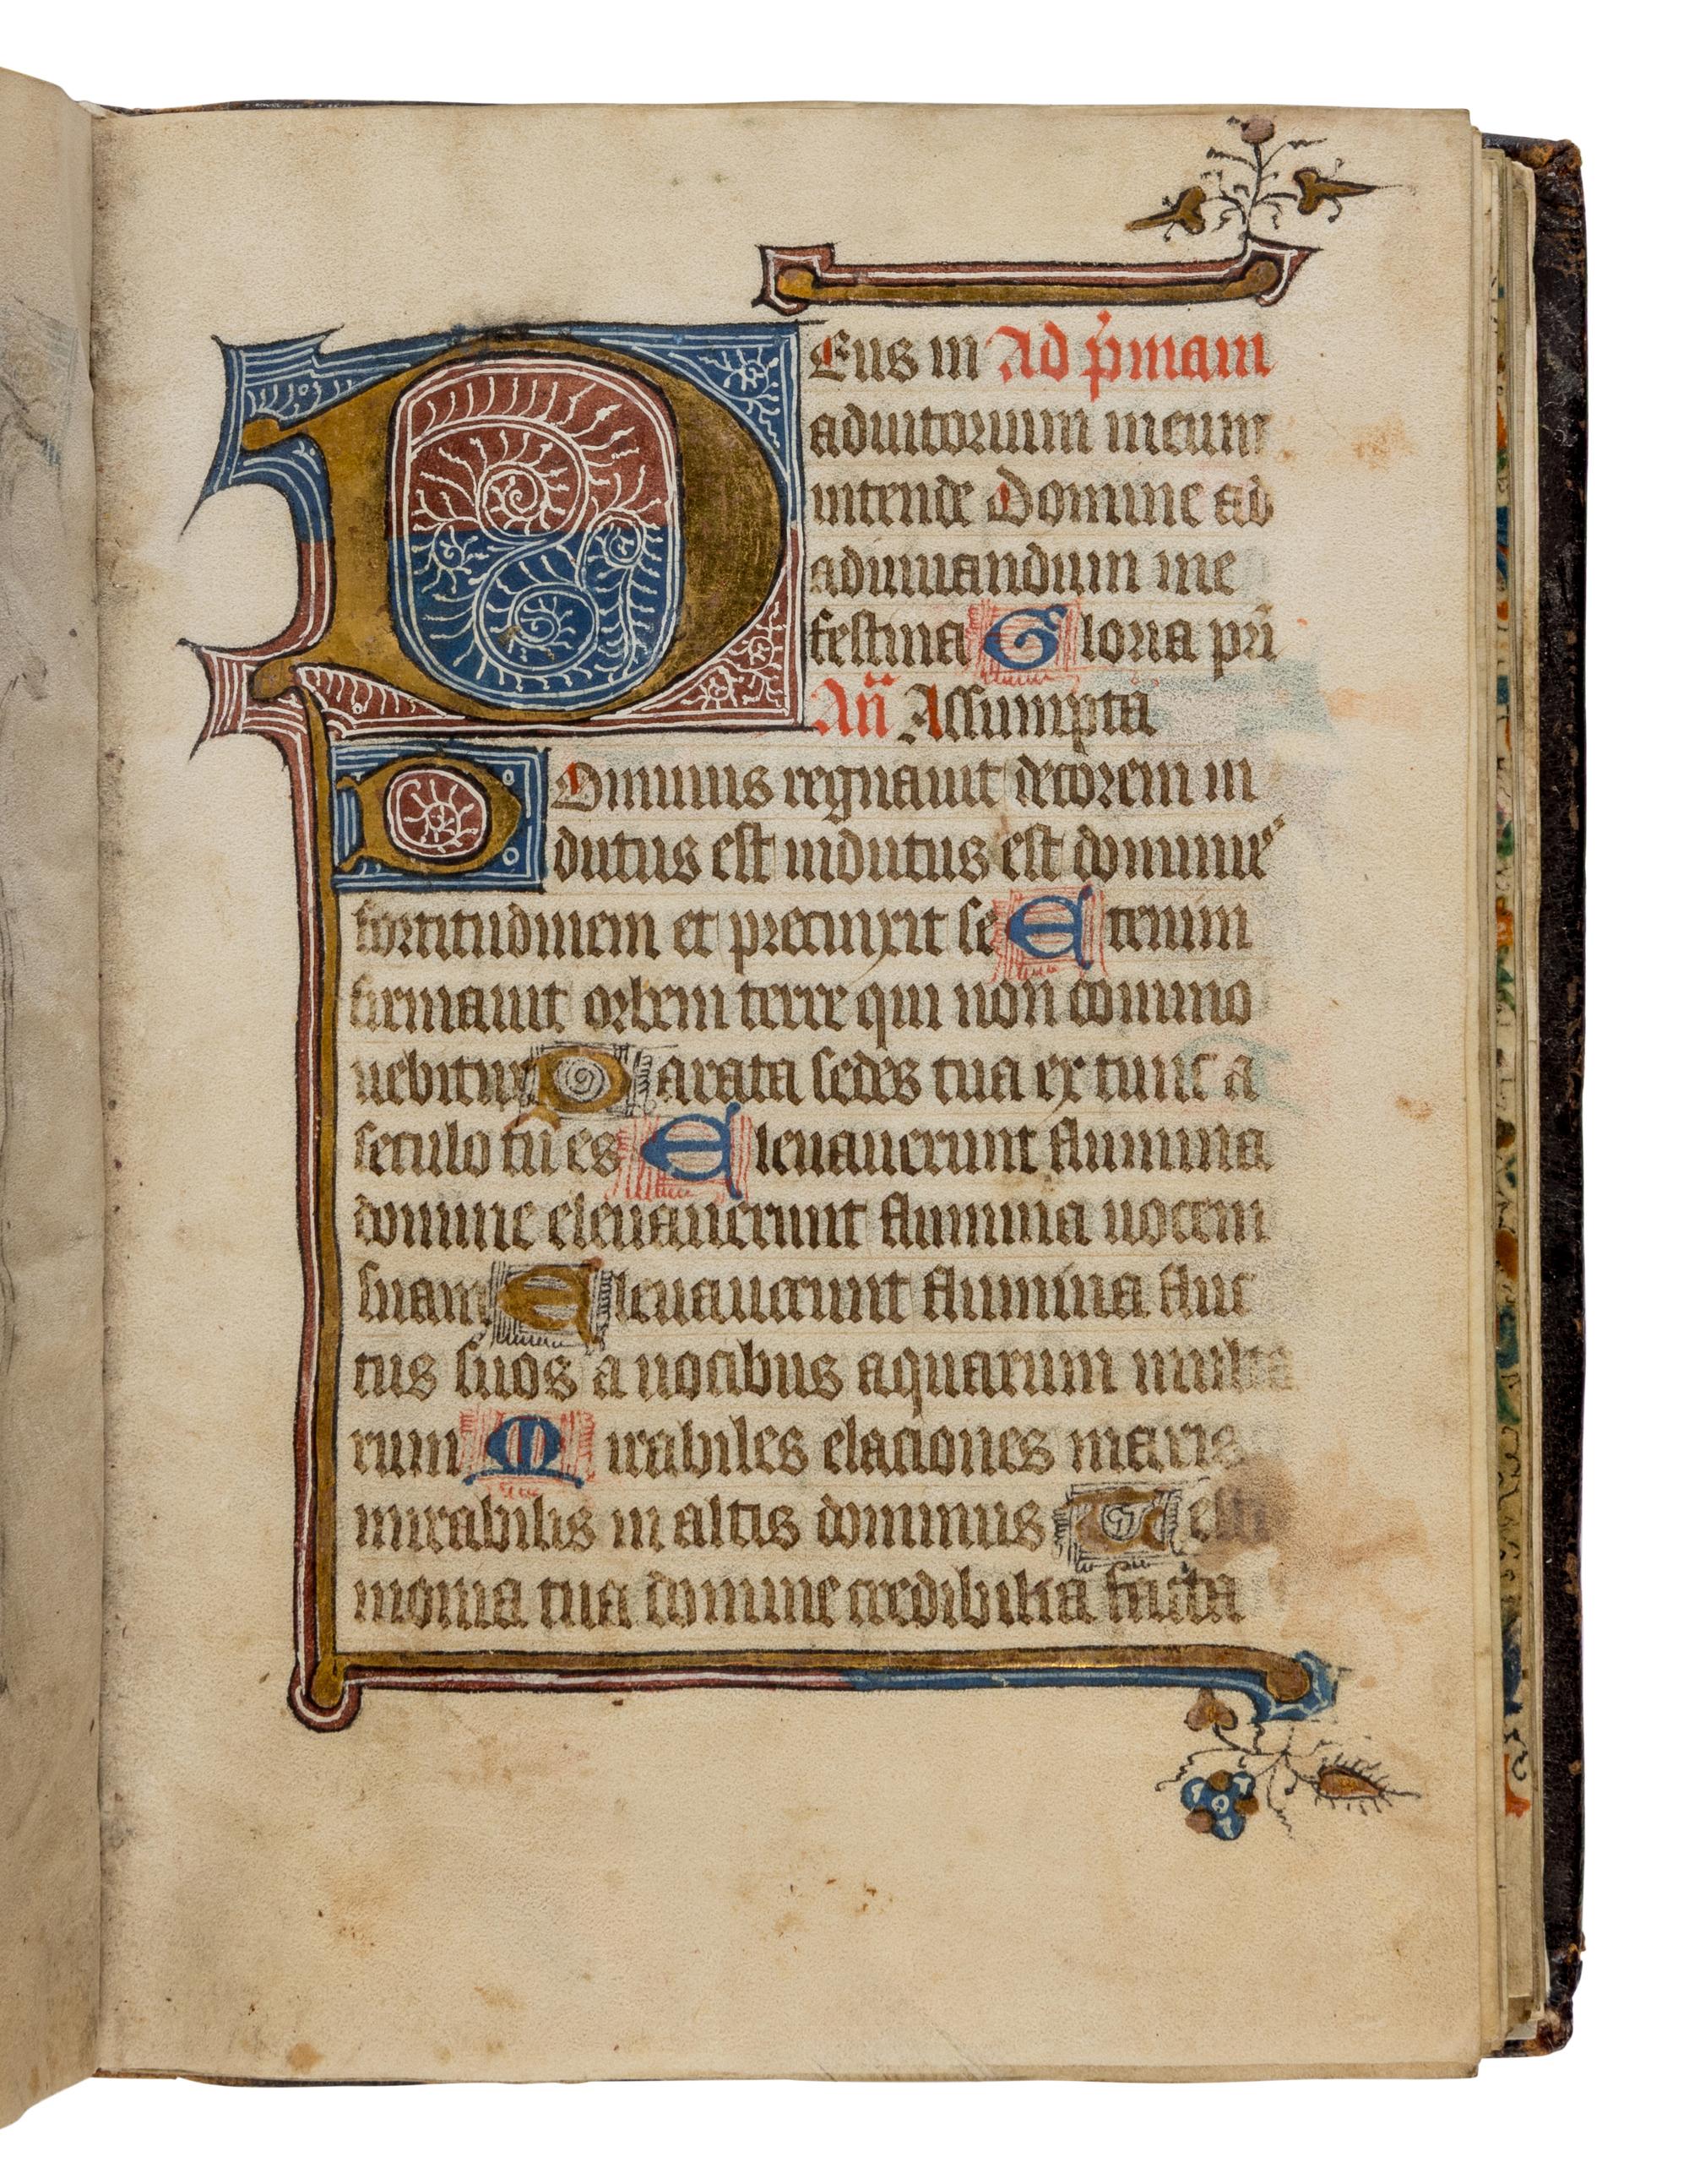 DEus in Ad p̄mam
adiutorium meum
intende Domine ad
adiuuandum me
festina Gloria pr̄i
An̄ Assumpta
DOminus regnauit decorem in
dutus est indutus est dominꝰ
fortitudinem et precinxit se Etenim
firmauit orbem terre qui non commo
uebitur Parata sedes tua ex tunc a
seculo tu es Eleuauerunt flumina
domine eleuauerunt flumina uocem
suam Eleuauerunt flumina fluc
tus suos a uocibus aquarum multa
rum Mirabiles elaciones maris
mirabilis in altis dominus Testi
monia tua domine credibilia facta